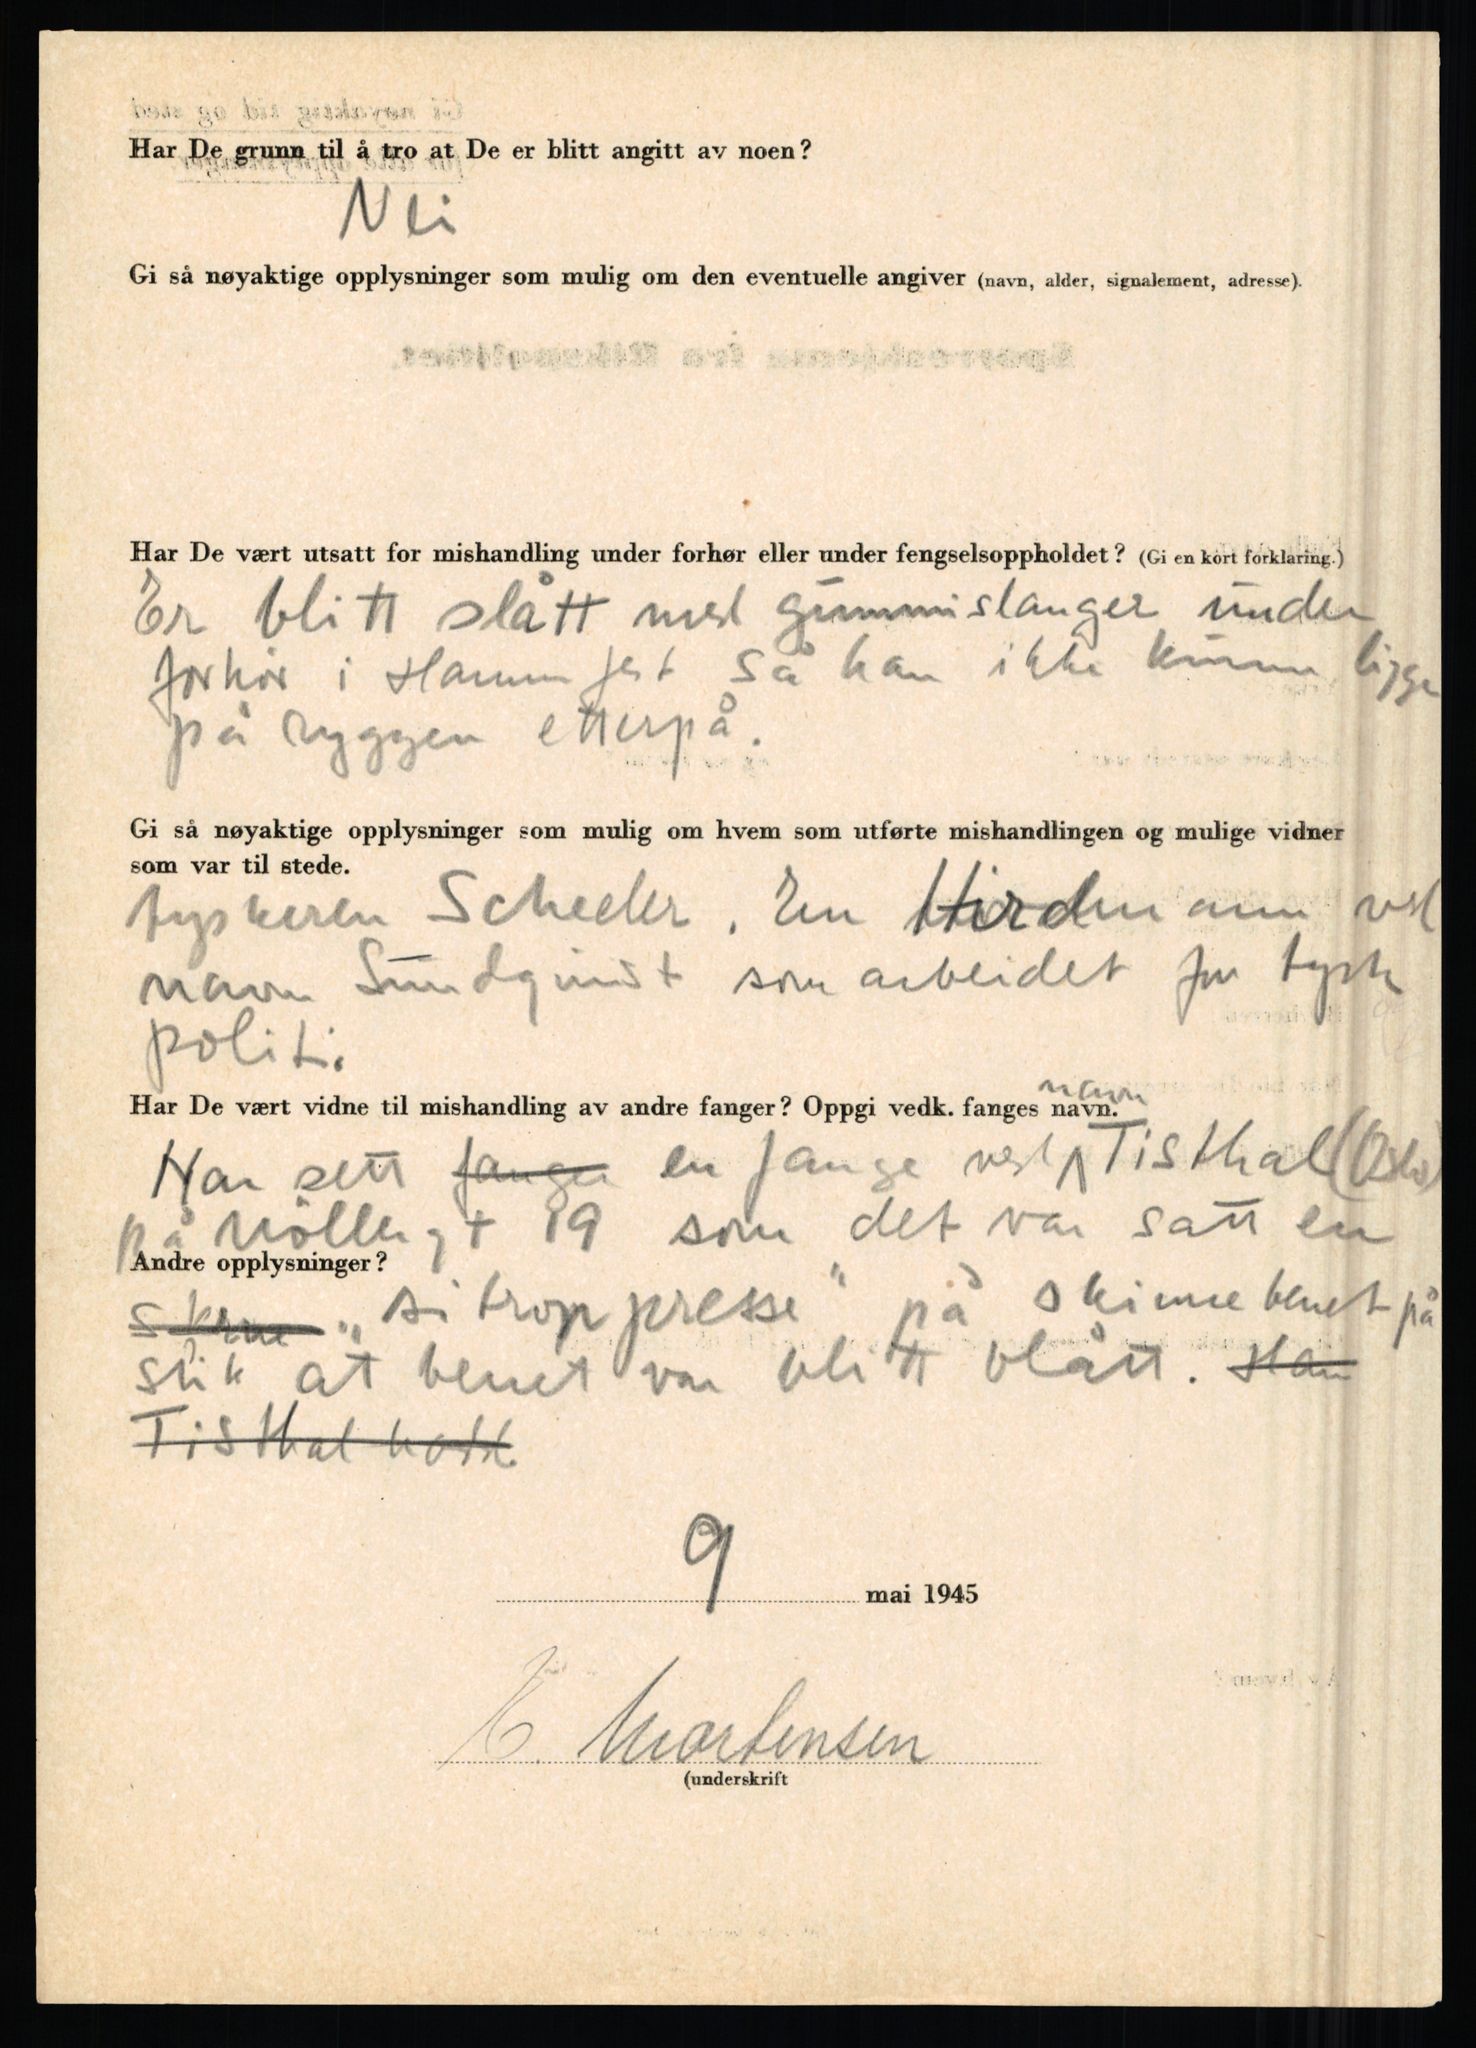 Har De grunn til å tro at De er blitt angitt av noen?
Nei
Gi så nøyaktige opplysninger som mulig om den eventuelle angiver (navn, alder, signalement, adresse).
Har De vært utsatt for mishandling under forhør eller under fengselsoppholdet? (Gi en kort forklaring.)
Er blitt slått med gummislanger under
forhör i Hammfest så han ikke kunne ligge
på ryggen etterpå.
Gi så nøyaktige opplysninger som mulig om hvem som utførte mishandlingen og mulige vidner
som var til stede.
tyskeren Scheeler. En Hirdmann ved
navn Sundqvist som arbeidet for tysk
politi.
Har De vært vidne til mishandling av andre fanger? Oppgi vedk. fanges navn.
navn
Har sett fanger en fange ved Tisthal (Oslo)
på Möllergt 19 som det var satt en
Andre opplysninger?
"sitronpresse" på skinnebenet på
slik at benet var blitt blått. Han
Tisthal hadde
9 mai 1945
E. Mortensen
(underskrift